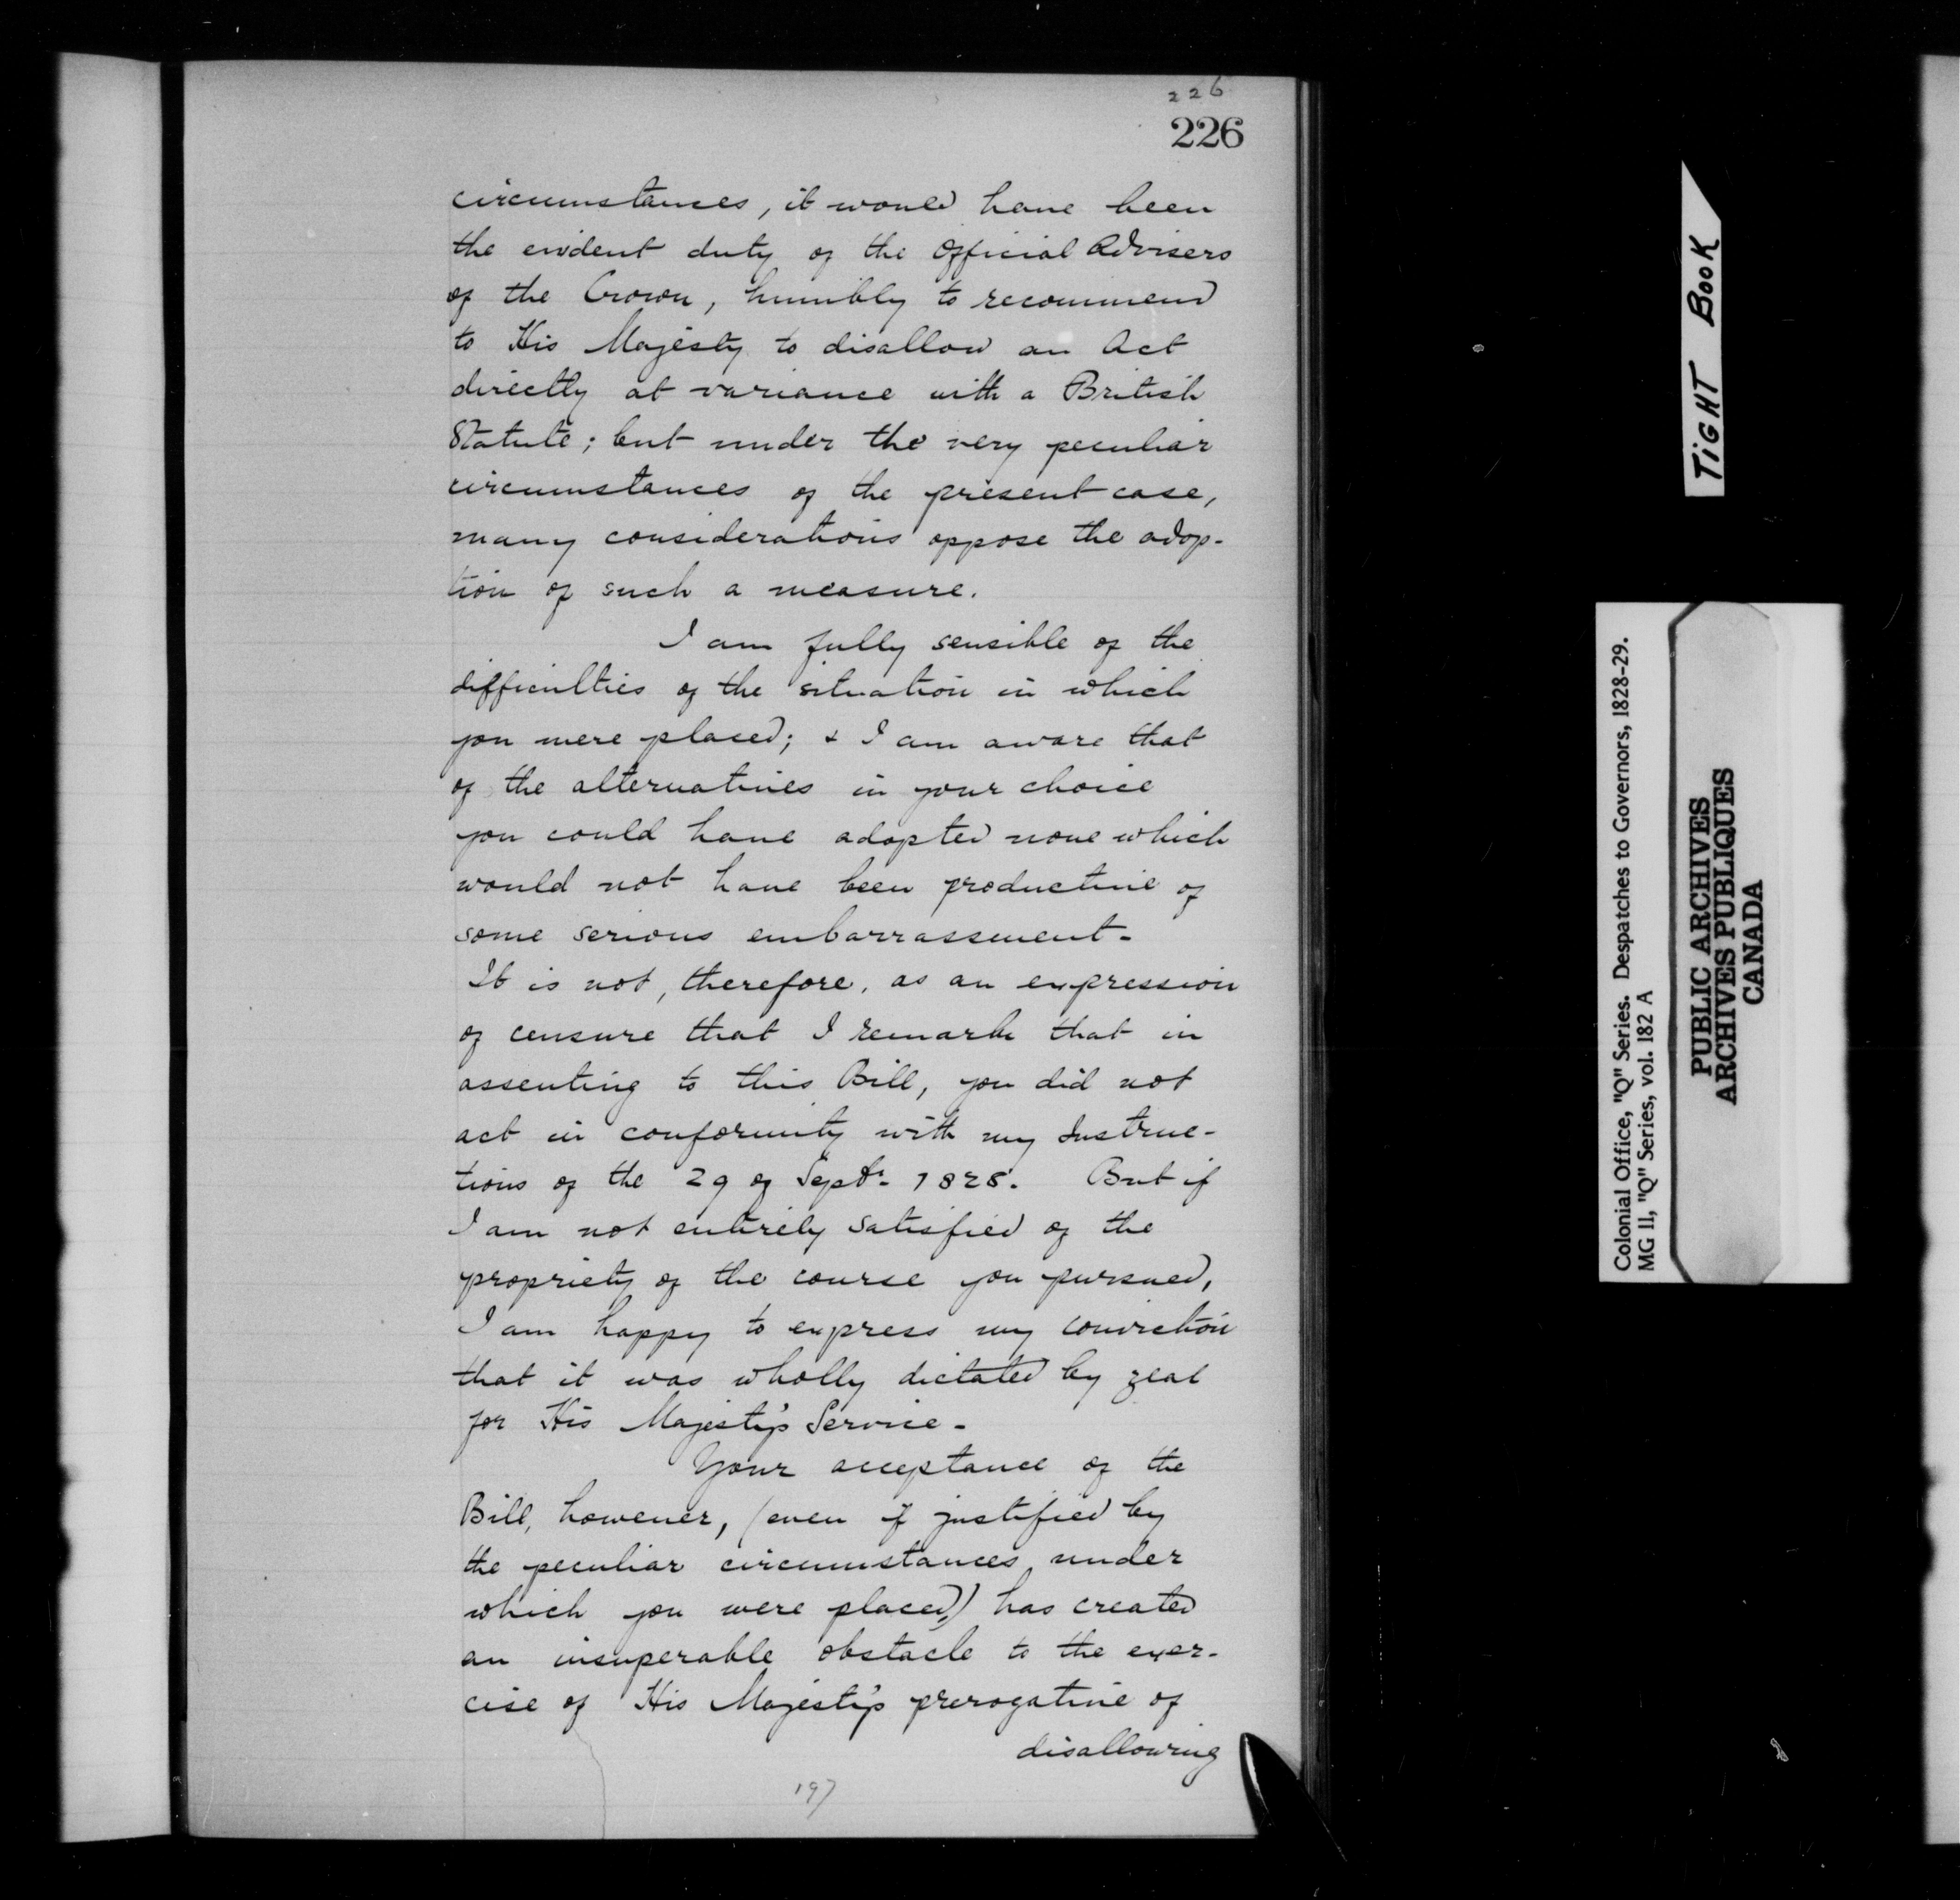 226
226
circumstances, it would have been
the evident duty of the Official Advisers
of the Crown, humbly to recommend
to His Majesty to disallow an Act
directly at variance with a British
Statute; but under the very peculiar
circumstances of the present case,
many considerations oppose the adop-
tion of such a measure.
I am fully sensible of the
difficulties of the situation in which
you were placed; & I am aware that
of the alternatives in your choice
you could have adopted none which
would not have been productive of
some serious embarrassment-
It is not, therefore, as an expression
of censure that I remark that in
assenting to this Bill, you did not
act in conformity with my Instruc-
tions of the 29 of Septr. 1828. But if
I am not entirely satisfied of the
propriety of the course you pursued,
I am happy to express my conviction
that it was wholly dictated by zeal
for His Majesty's Service-
Your acceptance of the
Bill, however, (even if justified by
the peculiar circumstances under
which you were placed,) has created
an insuperable obstacle to the exer-
cise of His Majesty's prerogative of
disallowing
197
TiGHT BooK
Colonial Office, "Q" Series. Despatches to Governors, 1828-29.
MG 11, "Q" Series, vol. 182 A
PUBLIC ARCHIVES
ARCHIVES PUBLIQUES
CANADA